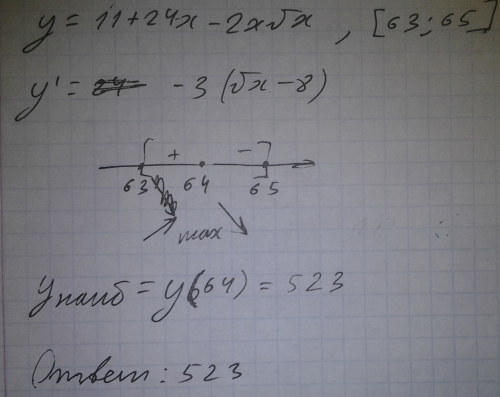 y = 11 + 24x - 2x√x , [63; 65]
y' = -3 (√x - 8)
[ + - ]
63 64 65
max
yнаиб = y(64) = 523
Ответ: 523